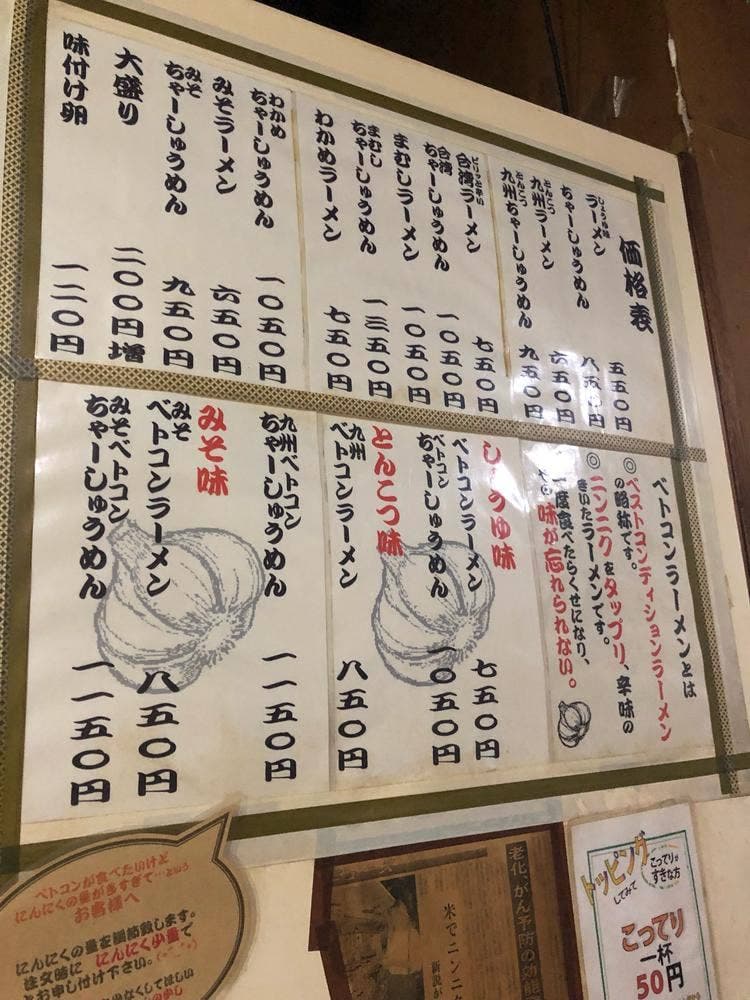 価格表
しょうゆ味
ラーメン 五五〇円
ちゃーしゅうめん 八五〇円
とんこつ
九州ラーメン 六五〇円
とんこつ
九州ちゃーしゅうめん 九五〇円
ピリッと辛い
台湾ラーメン 七五〇円
台湾
ちゃーしゅうめん 一〇五〇円
まむしラーメン 一〇五〇円
まむし
ちゃーしゅうめん 一三五〇円
わかめラーメン 七五〇円
わかめ
ちゃーしゅうめん 一〇五〇円
みそラーメン 六五〇円
みそ
ちゃーしゅうめん 九五〇円
大盛り 二〇〇円増
味付け卵 一二〇円
ベトコンラーメンとは
◎ベストコンディションラーメン
の略称です。
◎ニンニクをタップリ、辛味の
きいたラーメンです。
一度食べたらくせになり、
その味が忘れられない。
しょうゆ味
ベトコンラーメン 七五〇円
ベトコン
ちゃーしゅうめん 一〇五〇円
とんこつ味
九州
ベトコンラーメン 八五〇円
九州ベトコン
ちゃーしゅうめん 一一五〇円
みそ味
みそ
ベトコンラーメン 八五〇円
みそベトコン
ちゃーしゅうめん 一一五〇円
ベトコンが食べたいけど
にんにくの量が多すぎて…
お客様へ
にんにくの量を調節致します。
注文時に にんにく少量で
とお申し付け下さい。
少なくしてほしい
老化、がん予防の効能
米でニンニク
新説が
トッピング
してみて
こってりが
すきな方
こってり
一杯
50円